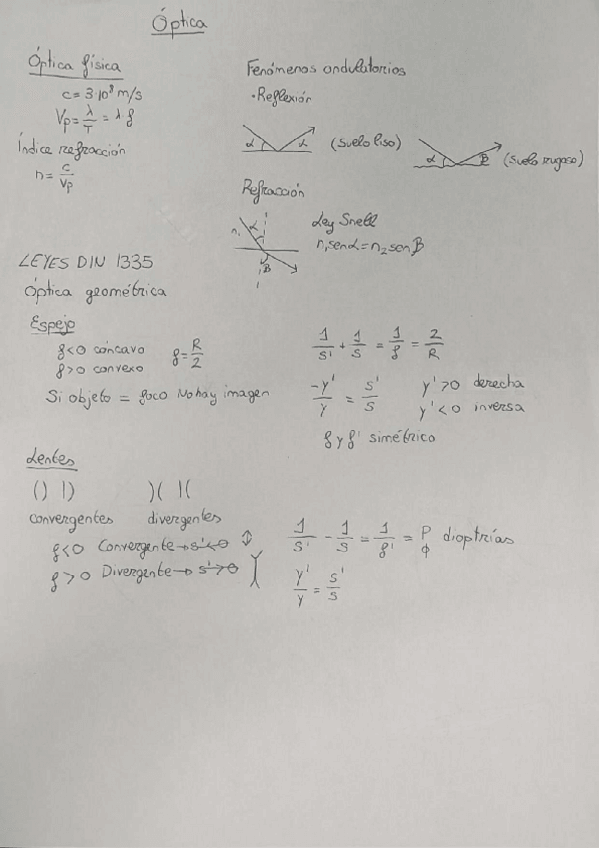 Óptica
Óptica física
c = 3·10⁸ m/s
Vp = λ/T = λ·f
Índice refracción
n = c/Vp
Fenómenos ondulatorios
·Reflexión
α α (suelo liso)
α β (suelo rugoso)
Refracción
n₁ α β
Ley Snell
n₁ senα = n₂ sen β
LEYES DIN 1335
Óptica geométrica
Espejo
f<0 cóncavo
f>0 convexo
f = R/2
Si objeto = foco No hay imagen
1/s' + 1/s = 1/f = 2/R
-y'/y = s'/s
y'>0 derecha
y'<0 inversa
f y f' simétrico
Lentes
() |) )( |(
convergentes divergentes
f<0 Convergente → s'<0
f>0 Divergente → s'>0
1/s' - 1/s = 1/f' = P dioptrías
φ
y'/y = s'/s